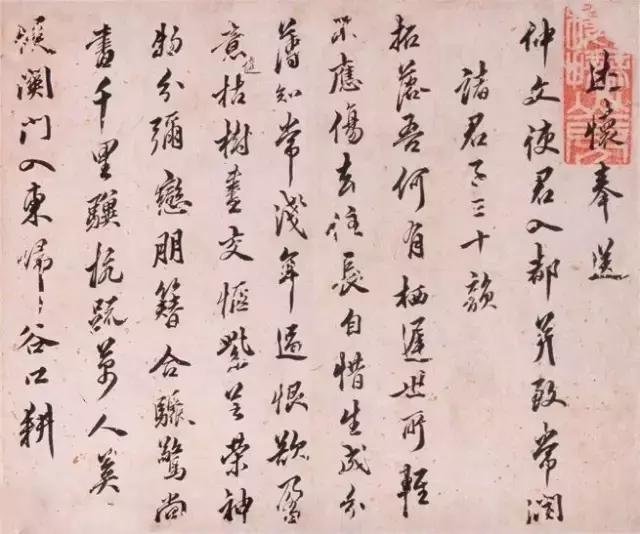 述懷奉送
仲文使君入都并致常潤
諸君子三十韻
拓落吾何有栖遲世所輕
不應傷去住長自惜生成分
薄知常淺年逼恨欲盈
意枯樹盡交愜紫芝榮神
物分彌戀朋簪合驪驚尚
書千里驥抗疏萬人英
關門入東歸谷口耕